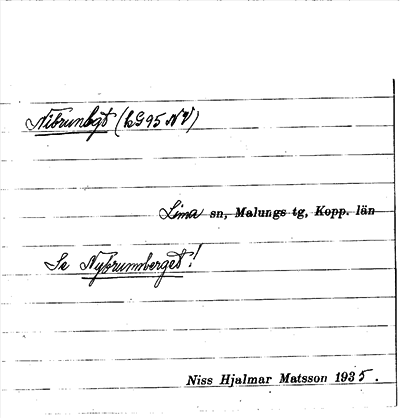 Nibrunbgt (bG95 NV)
Lima sn, Malungs tg, Kopp. län
Se Nybrunnberget!
Niss Hjalmar Matsson 1935.